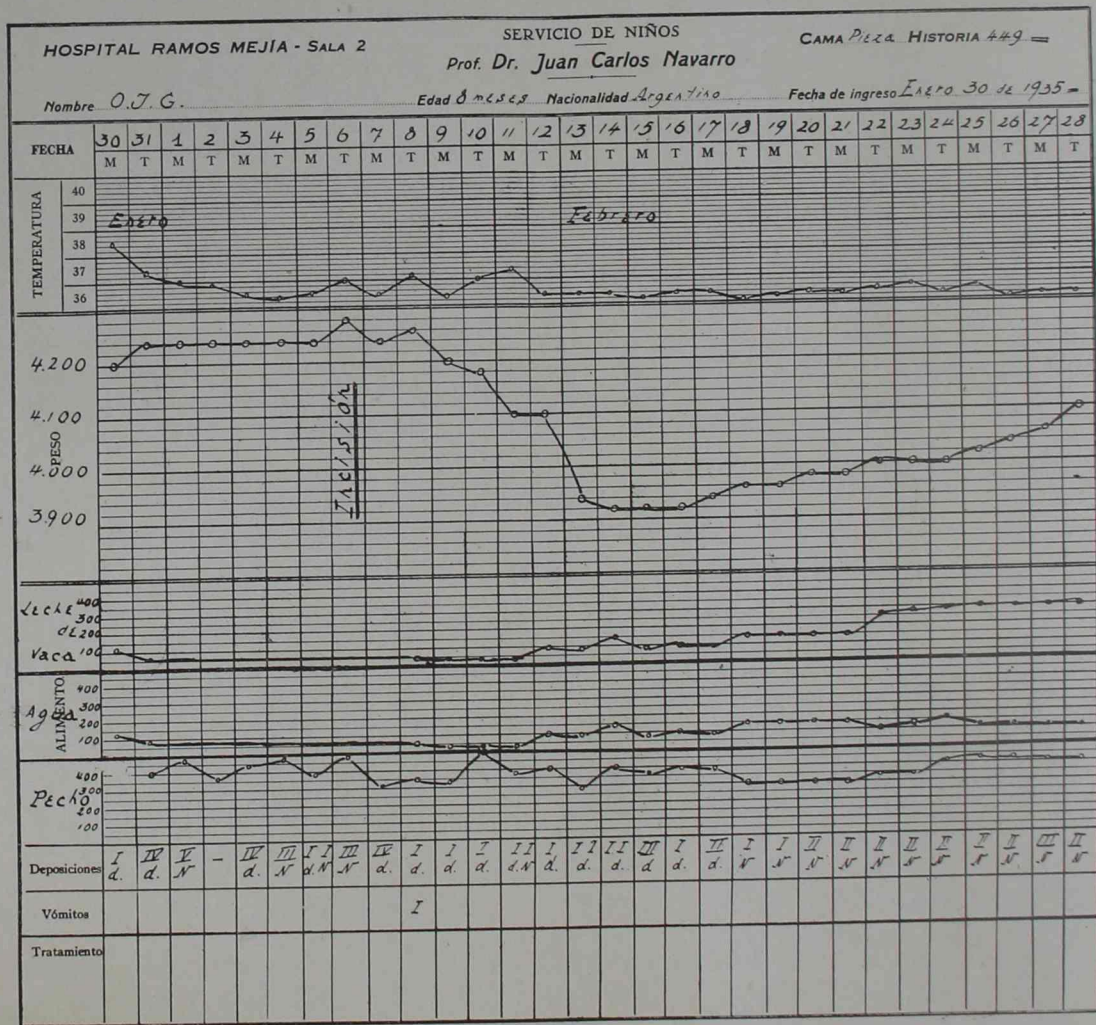 HOSPITAL RAMOS MEJÍA - SALA 2
SERVICIO DE NIÑOS
Prof. Dr. Juan Carlos Navarro
CAMA Pieza HISTORIA 449 =
Nombre O.J.G. Edad 8 meses Nacionalidad Argentino Fecha de ingreso Enero 30 de 1935 =
FECHA 30 31 1 2 3 4 5 6 7 8 9 10 11 12 13 14 15 16 17 18 19 20 21 22 23 24 25 26 27 28
M T M T M T M T M T M T M T M T M T M T M T M T M T M T M T
TEMPERATURA
40
39
38
37
36
Enero
Febrero
PESO
4.200
4.100
4.000
3.900
Incisión
ALIMENTO
Leche de Vaca
400
300
200
100
Agua
400
300
200
100
Pecho
400
300
200
100
Deposiciones I IV V – IV III I I III IV I I I I I I I I I I III I II I I II II II II II II II III II
d. d. N d. N d. N N d. d. d. d. d. N d. d. d. d. d. d. N N N N N N N N N N N
Vómitos I
Tratamiento